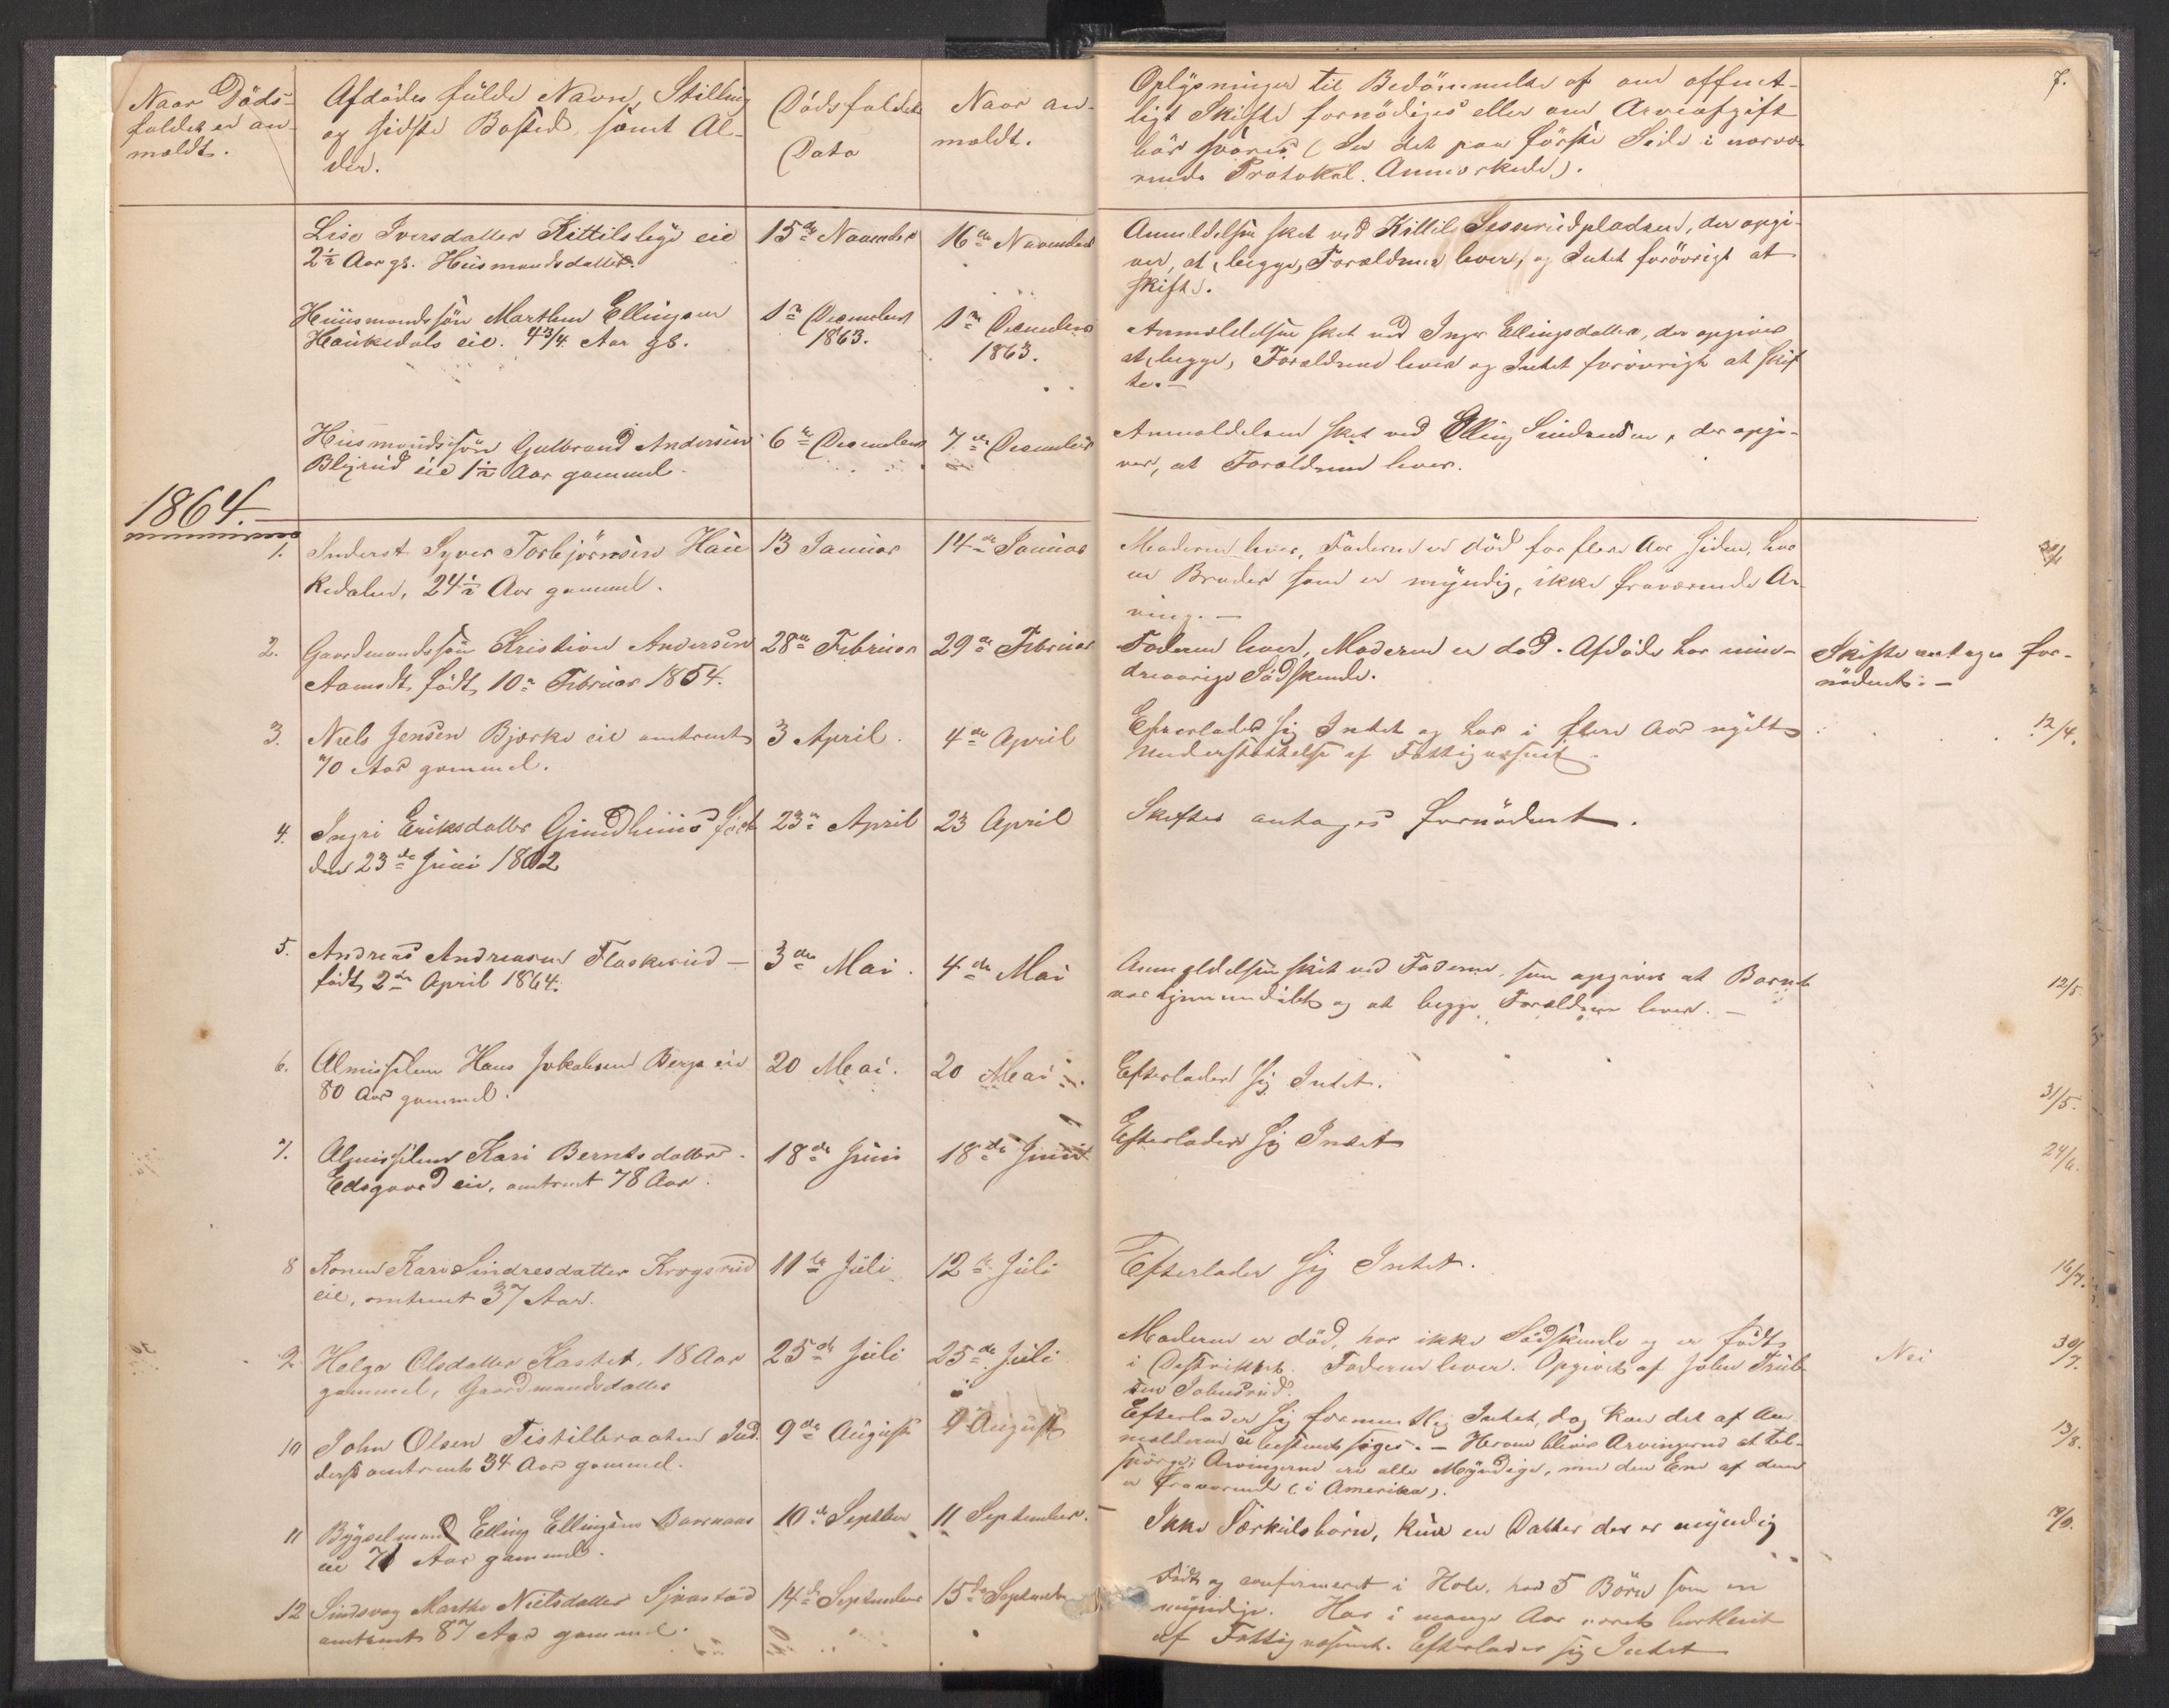 Naar Döds-
faldet er an-
meldt.
Afdödes fulde Navn, Stilling
og sidste Bosted, samt Al-
der.
Dödsfaldets
Dato
Naar an-
meldt.
Oplysninger til Bedömmelse af om offent-
ligt Skifte fornödiges eller om Arveafgift
bör svares (Se det paa förste Side i nærvæ-
rende Protokol Anmærkede).
7.
Lise Iversdatter Kittilslege eie
2½ Aar gl. Huusmandsdatter.
15de November
16de November
Anmeldelsen sket ved Kittil Sesserudpladsen, der opgi-
ver, at begge Forældrene lever, og Intet forövrigt at
skifte.
Huusmandssön Marthin Ellingsen
Haukedals eie. 4 3/4 Aar gl.
1ste December
1863.
1ste December
1863.
Anmeldelsen sket ved Inger Ellingsdatter, der opgiver
at begge Forældrene lever og Intet forövrigt at skif
te.-
Huusmandssön Gulbrand Andersen
Bljrud eie 1½ Aar gammel.
6te December
7de December
Anmeldelsen sket ved Elling Sindresen, der opgi-
ver, at Forældrene lever.
1864.
1. Inderst Syver Torbjörnsen Hau
kedalen, 24½ Aar gammel.
13 Januar
14de Januar
Moderen lever, Faderen er död for flere Aar siden, har
en Broder som er myndig, ikke fraværende Ar-
ving.-
2. Gaardmandssön Kristian Andersen
Aamodt, födt 10de Februar 1854.
28de Februar
29de Februar
Faderen lever, Moderen er död. Afdöde har min-
dreaarige Södskende.
Skifte antages for-
nödent.-
3. Niels Jensen Bjørke eie omtrent
70 Aar gammel.
3 April.
4de April
Efterlader sig Intet og har i flere Aar nydt
Understøttelse af Fattigvæsenet.
12/4.
4. Ingri Eriksdatter Gundhuus födt
den 23de Juni 1802
23de April
23 April
Skiftes antages fornödent.
5. Andreas Andreasen Flaskerud -
födt 2den April 1864.
3die Mai.
4de Mai
Anmeldelsen sket ved Faderen, som opgiver at Barnet
var hjemmedöbt og at begge Forældrene lever.-
12/5
6. Almisselem Hans Jokobsen Berge eie
80 Aar gammel.
20 Mai.
20 Mai.
Efterlader sig Intet.
31/5.
7. Almisselem Kari Berntsdatter
Edsgaard eie, omtrent 78 Aar.
18de Juni
18de Juni
Efterlader sig Intet
24/6.
8 Konen Kari Sindresdatter Krogsrud
eie, omtrent 37 Aar.
11te Juli
12te Juli
Efterlader sig Intet.
16/7.
9. Helga Olsdatter Kastet, 18 Aar
gammel, Gaardmandsdatter
25de Juli
25de Juli
Moderen er död, har ikke Södskende og er födt
i Distriktet. Faderen lever. Opgivet af John Trul-
sen Johnsrud.
Nei
30/7.
10 John Olsen Tistilbraaten Ind-
derst omtrent 34 Aar gammel.
9de August
9 August
Efterlader sig formentlig Intet, dog kan det af An-
melderen ei bestemt siges.- Herom bliver Arvingerne at til-
spörge; Arvingerne ere alle Myndige, men den Ene af dem
er fraværende (i Amerika).
13/8.
11 Bygselmand Elling Ellingsen
eie 71 Aar gammel.
10de Septbr
11 September.
Ikke Særkulsbörn, kun en Datter der er myndig
12 Marthe Nielsdatter
omtrent 87 Aar gammel.
14de September
15de September
Födt og confirmeret i Hole, har 5 Börn som er
myndige. Har i mange Aar været
af Fattigvæsenet. Efterlader sig Intet